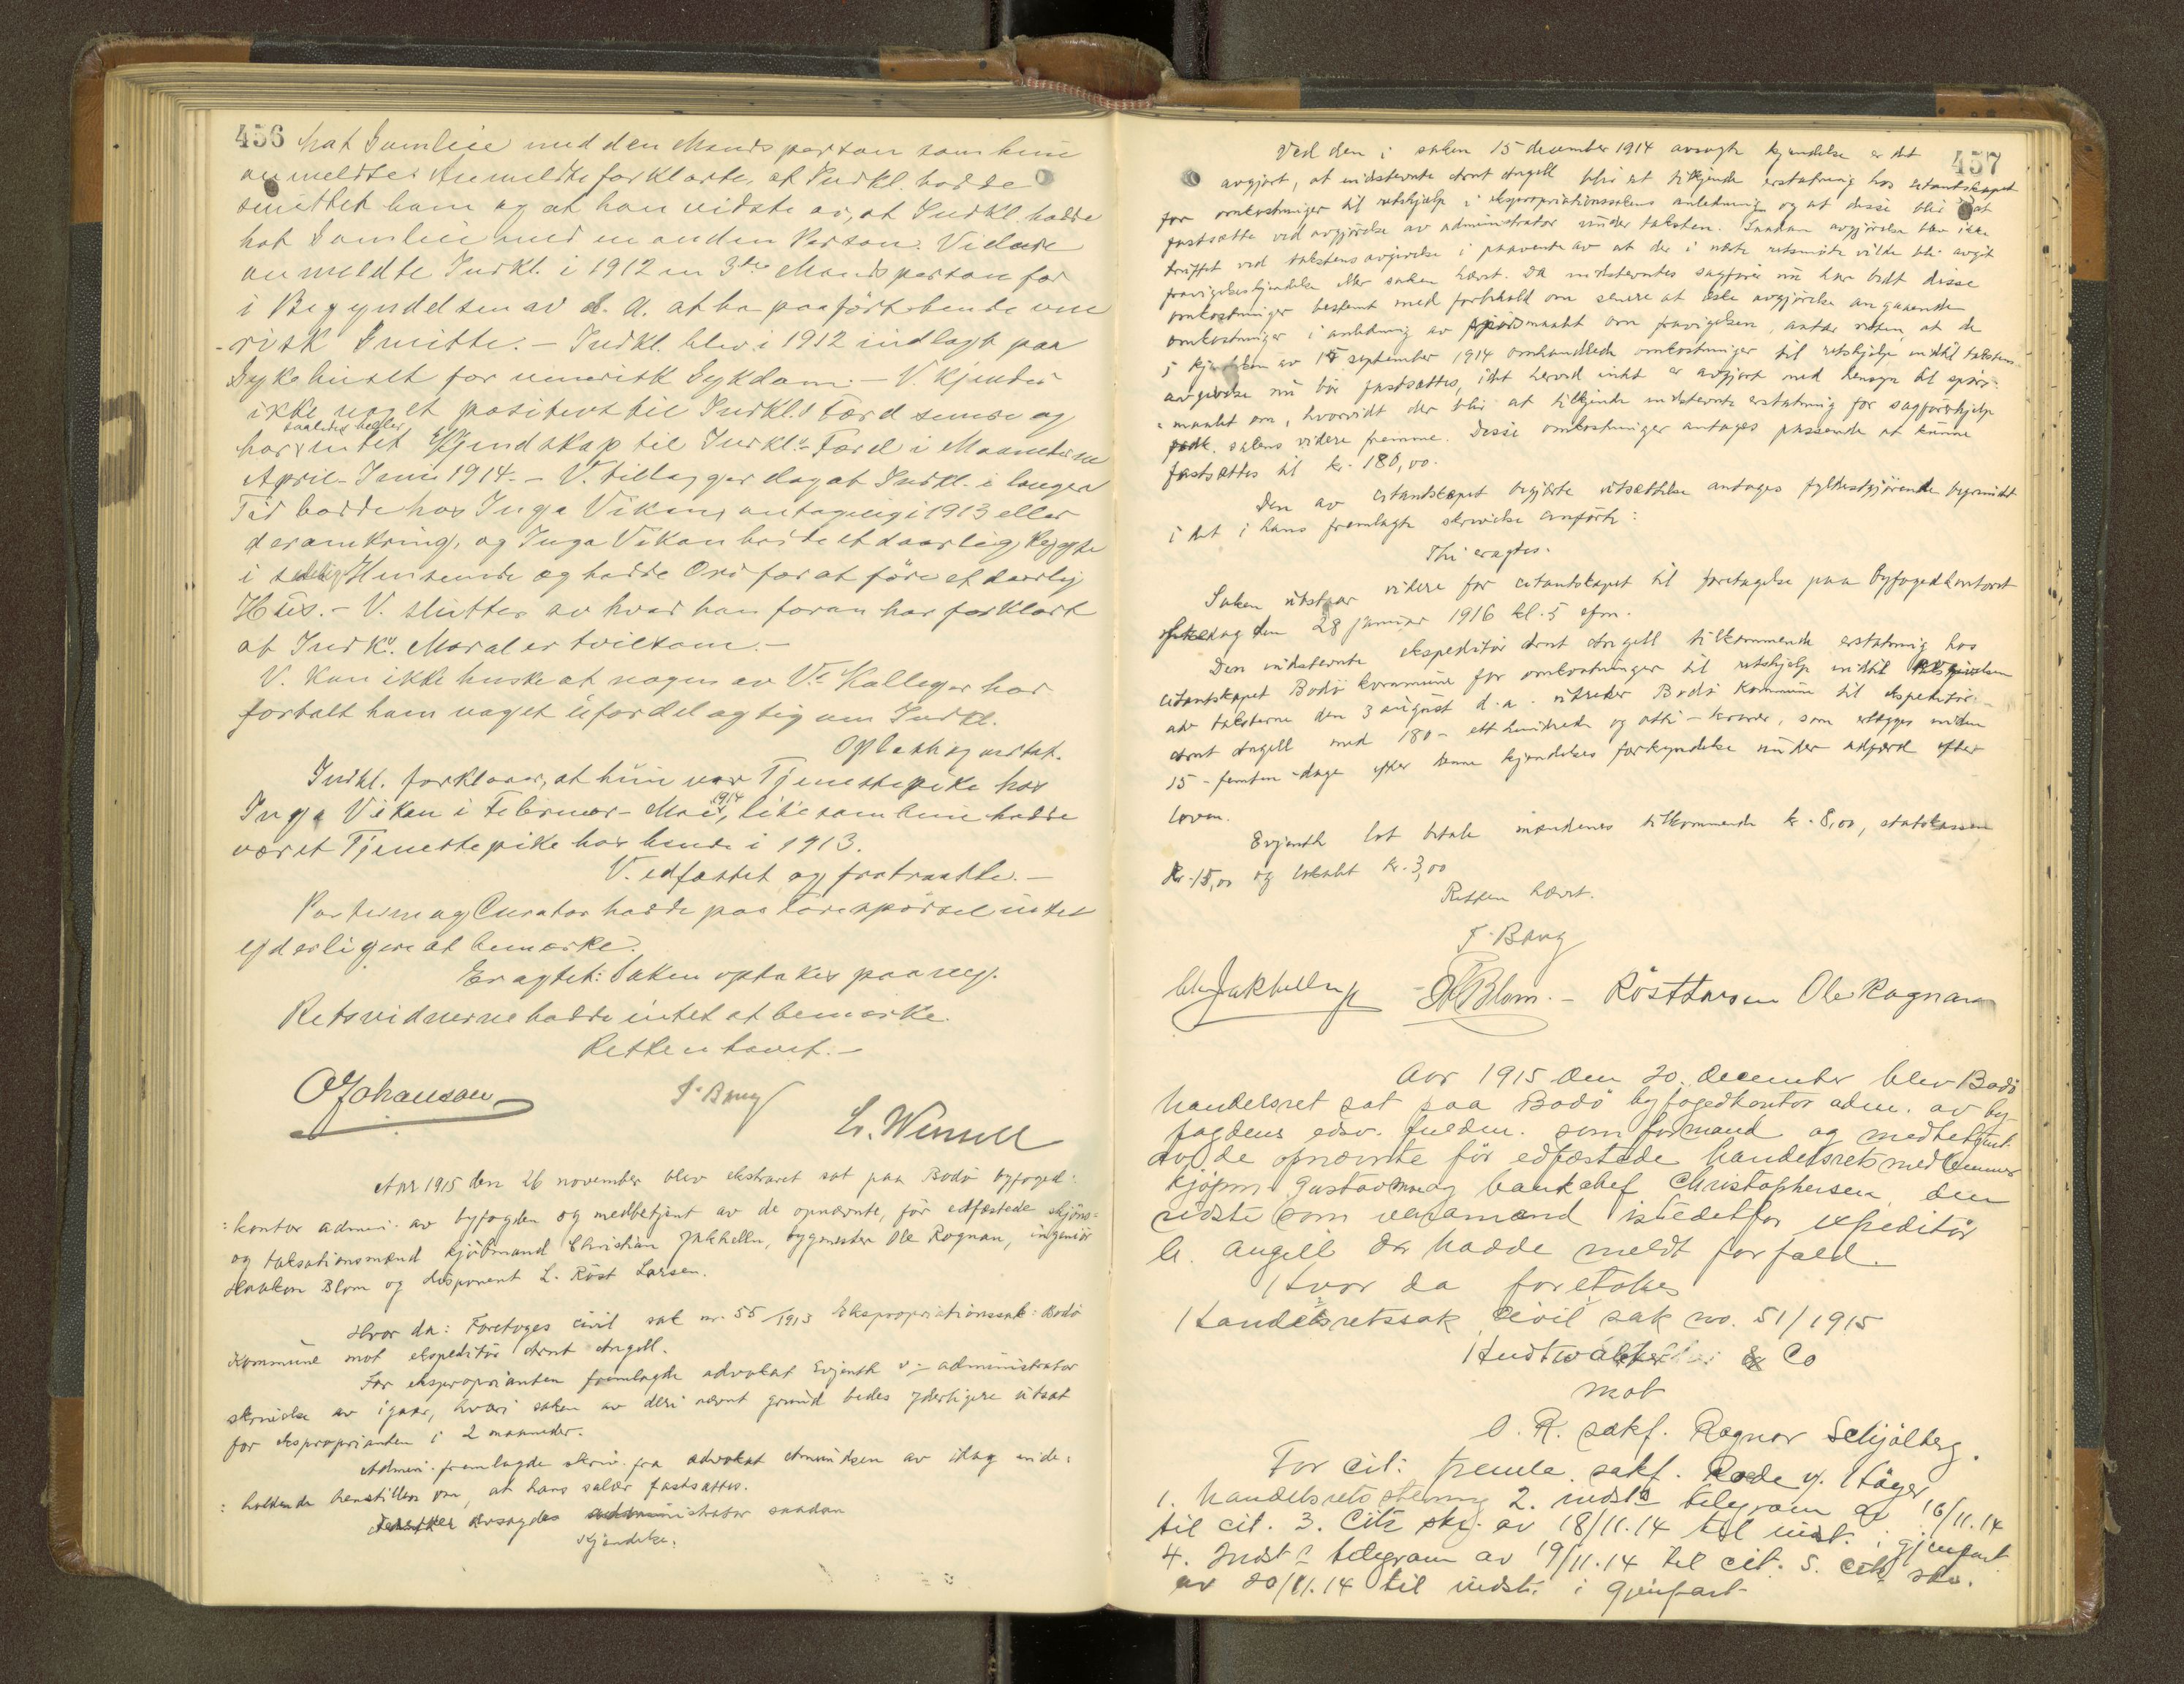 456
hat Samleie med den Mandsperson som hun
anmeldte. Anmeldte forklarte, at Indkl. hadde
smittet ham og at han vidste av, at Indkl. hadde
hat Samleie med en anden Person. Videre
anmeldte Indkl. i 1912 en 3die Mandsperson for
i Begyndelsen av d. A. at ha paaført hende vene
-risk Smitte. - Indkl. blev i 1912 indlagt paa
Sykehuset for venerisk Sykdom. - V. kjender
ikke noget positivt til Indkl.s Færd senere og
har saaledes heller intet Kjendskap til Indkl.s Færd i Maanederne
April-Juni 1914. - V. tillægger dog at Indkl. i længere
Tid bodde hos Inga Viken, antagelig i 1913 eller
deromkring, og Inga Viken hadde et daarlig Rygte
i sedelig Henseende og hadde Ord for at føre et daarlig
Hus. - V. slutter av hvad han foran har forklart
at Indkl. Moral er tvilsom. -
V. kan ikke huske at nogen av V.s Kolleger har
fortalt ham noget ufordelagtig om Indkl.
Oplæst og vedtat.
Indkl. forklarer, at hun var Tjenestepike hos
Inga Viken i Februar - Mai 1914, likesom hun hadde
været Tjenestepike hos hende i 1913.
V. edfæstet og fratraadte. -
Parterne og Curator hadde paa Forespørsel intet
yderligere at bemærke.
Eragtet: Saken optakes paany.
Retsvidnerne hadde intet at bemærke.
Retten hævet. -
O Johansen
J. Bang
Aar 1915 den 26 november blev ekstraret sat paa Bodö byfoged:
:kontor admin. av byfogden og medbetjent av de opnævnte, för edfæstede skjöns=
og taksationsmænd kjöbmand Christian Jakhelln, bygmester Ole Rognan, ingeniör
Haakon Blom og disponent L. Röst Larsen.
Hvor da: Foretages civil sak nr. 55/1913 Ekspropriationssak: Bodö
kommune mot ekspeditör Arnt Angell.
For eksproprianten fremlagde advokat Evjenth v. administrator
skrivelse av igaar, hvori saken av deri nævnt grund bedes yderligere utsat
for eksproprianten i 2 maaneder.
Admin. fremlagde skriv. fra advokat Amundsen av idag inde:
:holdende henstillen om, at hans salær fastsættes.
Derefter avsagdes administrator saadan
Kjendelse:
457
Ved den i saken 15 december 1914 avsagte kjendelse er det
avgjort, at indstevnte Arnt Angell blir at tilkjende erstatning hos citantskapet
for omkostninger til retshjelp i ekspropriationssakens anledning og at disse blir at
fastsætte ved avgjörelse av administrator under taksten. Saadan avgjörelse blev ikke
truffet ved takstens avgivelse i paavente av at der i næste retsmöte vilde bli avgit
fravigelseskjendelse eller saken hævet. Da indstevntes sagförer nu har bedt disse
omkostninger bestemt med forbehold om senere at æske avgjörelse angaaende
omkostninger i anledning av spörsmaalet om fravigelsen, antar retten, at de
i kjendelsen av 15 september 1914 omhandlede omkostninger til retshjelp indtil takstens
avgivelse nu bör fastsættes, idet herved intet er avgjort med hensyn til spörs:
:maalet om, hvorvidt der blir at tilkjende indstevnte erstatning for sagförerhjelp
sakens videre fremme. Disse omkostninger antages passende at kunne
fastsættes til kr. 180,00.
Den av citantskapet begjærte utsættelse antages fyldestgjörende begrundet
i det i hans fremlagte skrivelse anförte:
Thi eragtes:
Saken utstaar videre for citantskapet til foretagelse paa byfogedkontoret
fredag den 28 januar 1916 kl. 5 efm.
Den indstevnte ekspeditör Arnt Angell tilkommende erstatning hos
citantskapet Bodö kommune for omkostninger til retshjelp indtil avgivelsen
av taksterne den 3 august d.a. utreder Bodö kommune til ekspeditör
Arnt Angell med 180 - ett hundrede og otti - kroner, som erlægges inden
15 - femten - dage efter denne kjendelses forkyndelse under adfærd efter
loven.
Evjenth lot betale mændenes tilkommende kr. 8,00, statskassen
kr. 15,00 og lokalet kr. 3,00
Retten hævet.
J. Bang
Chr Jakhelln jr H Blom. - Röst Larsen Ole Rognan
Aar 1915 den 20. december blev Bodö
handelsret sat paa Bodö byfogedkontor adm. av by-
fogdens edsv. fuldm. som formand og medbetjent
av de opnævnte för edfæstede handelsretsmedlemmer
kjöpm. Gustav Moe og bankchef Christophersen, den
sidste som varamand istedetfor expeditör
A. Angell der hadde meldt forfald.
Hvor da foretokes
Handelsretssak civil sak no. 51/1915
Hudtwalcker & Co
mot
O. R. sakf. Ragnar Schjölberg.
For cit: freml. sakf. Rode v. Häger
1. handelsretsstevning 2. indsts telegram av 16/11.14
til cit. 3. Cits skr. av 18/11.14 til indst. i gjenpart
4. Indsts telegram av 19/11.14 til cit. 5. Cits skr.
av 20/11.14 til indst. i gjenpart